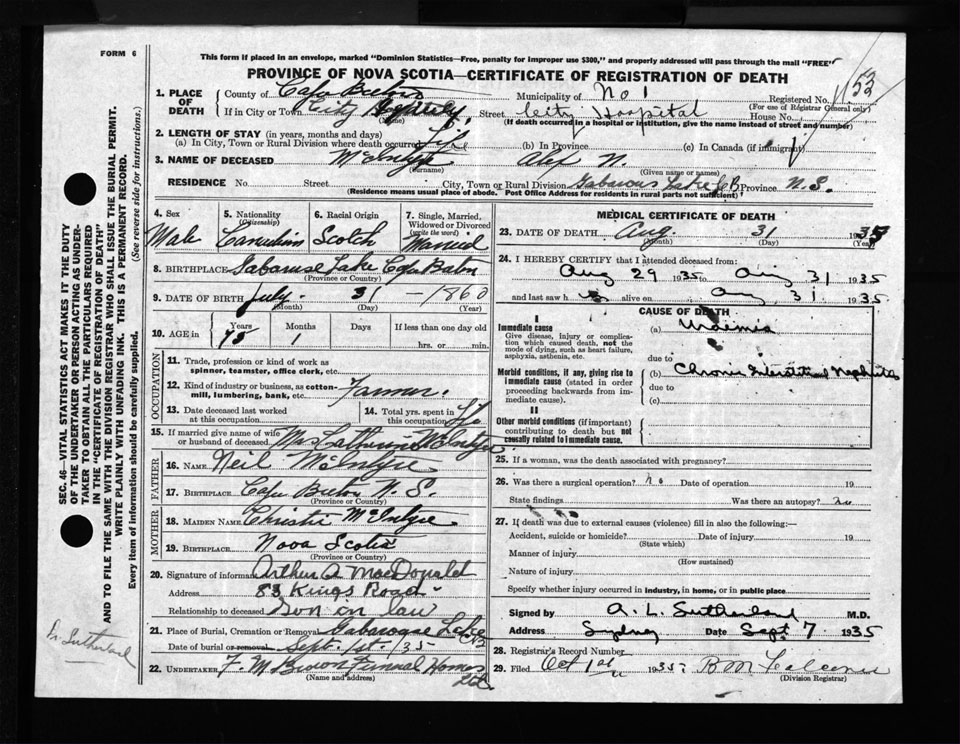 FORM 6
This form if placed in an envelope, marked "Dominion Statistics—Free, penalty for improper use $300," and properly addressed will pass through the mail "FREE"
PROVINCE OF NOVA SCOTIA—CERTIFICATE OF REGISTRATION OF DEATH
153
1. PLACE OF DEATH
County of Cape Breton Municipality of No 1 Registered No.
(For use of Registrar General only)
If in City or Town City Hospital, Street City Hospital House No.
(If death occurred in a hospital or institution, give the name instead of street and number)
2. LENGTH OF STAY (in years, months and days)
(a) In City, Town or Rural Division where death occurred Life (b) In Province (c) In Canada (if immigrant)
3. NAME OF DECEASED McIntyre Alex N.
(Surname) (Given name or names)
RESIDENCE No. Street City, Town or Rural Division Gabarous Lake C.B. Province N.S.
(Residence means usual place of abode. Post Office Address for residents in rural parts not sufficient)
4. Sex Male
5. Nationality (Citizenship) Canadian
6. Racial Origin Scotch
7. Single, Married, Widowed or Divorced (write the word) Married
8. BIRTHPLACE Gabaruse Lake Cape Breton
(Province or Country)
9. DATE OF BIRTH July 31 - 1860
(Month) (Day) (Year)
10. AGE in Years 75 Months 1 Days If less than one day old hrs. or min.
OCCUPATION
11. Trade, profession or kind of work as spinner, teamster, office clerk, etc.
12. Kind of industry or business, as cotton-mill, lumbering, bank, etc. Farmer.
13. Date deceased last worked at this occupation
14. Total yrs. spent in this occupation
15. If married give name of wife or husband of deceased Mrs Catherine McIntyre
FATHER
16. NAME Neil McIntyre
17. BIRTHPLACE Cape Breton N.S.
(Province or Country)
MOTHER
18. MAIDEN NAME Christie McIntyre
19. BIRTHPLACE Nova Scotia
(Province or Country)
20. Signature of informant Arthur A MacDonald
Address 83 Kings Road
Relationship to deceased Son in law
21. Place of Burial, Cremation or Removal Gabarouse Lake CB
Date of burial or removal Sept. 1st. 35
22. UNDERTAKER F. M. Brown Funeral Homes Ltd.
(Name and address)
MEDICAL CERTIFICATE OF DEATH
23. DATE OF DEATH Aug. 31 1935
(Month) (Day) (Year)
24. I HEREBY CERTIFY that I attended deceased from:
Aug 29 1935 to Aug 31 1935
and last saw h alive on Aug 31 1935
CAUSE OF DEATH
I
Immediate cause
Give disease, injury or complication which caused death, not the mode of dying, such as heart failure, asphyxia, asthenia, etc.
(a) Uraemia
due to
Morbid conditions, if any, giving rise to immediate cause (stated in order proceeding backwards from immediate cause).
(b) Chronic Interstitial Nephritis
due to
(c)
II
Other morbid conditions (if important) contributing to death but not causally related to immediate cause.
25. If a woman, was the death associated with pregnancy?
26. Was there a surgical operation? no Date of operation 19
State findings Was there an autopsy? no
27. If death was due to external causes (violence) fill in also the following:—
Accident, suicide or homicide? Date of injury 19
(State which)
Manner of injury
(How sustained)
Nature of injury
Specify whether injury occurred in industry, in home, or in public place
Signed by A. L. Sutherland M.D.
Address Sydney Date Sept 7 1935
28. Registrar's Record Number
29. Filed Oct 1st 1935
(Division Registrar)
SEC. 46—VITAL STATISTICS ACT MAKES IT THE DUTY
OF THE UNDERTAKER OR PERSON ACTING AS UNDER-
TAKER TO OBTAIN ALL THE PARTICULARS REQUIRED
IN THE "CERTIFICATE OF REGISTRATION OF DEATH"
AND TO FILE THE SAME WITH THE DIVISION REGISTRAR WHO SHALL ISSUE THE BURIAL PERMIT.
WRITE PLAINLY WITH UNFADING INK. THIS IS A PERMANENT RECORD.
Every item of information should be carefully supplied. (See reverse side for instructions.)
Dr Sutherland